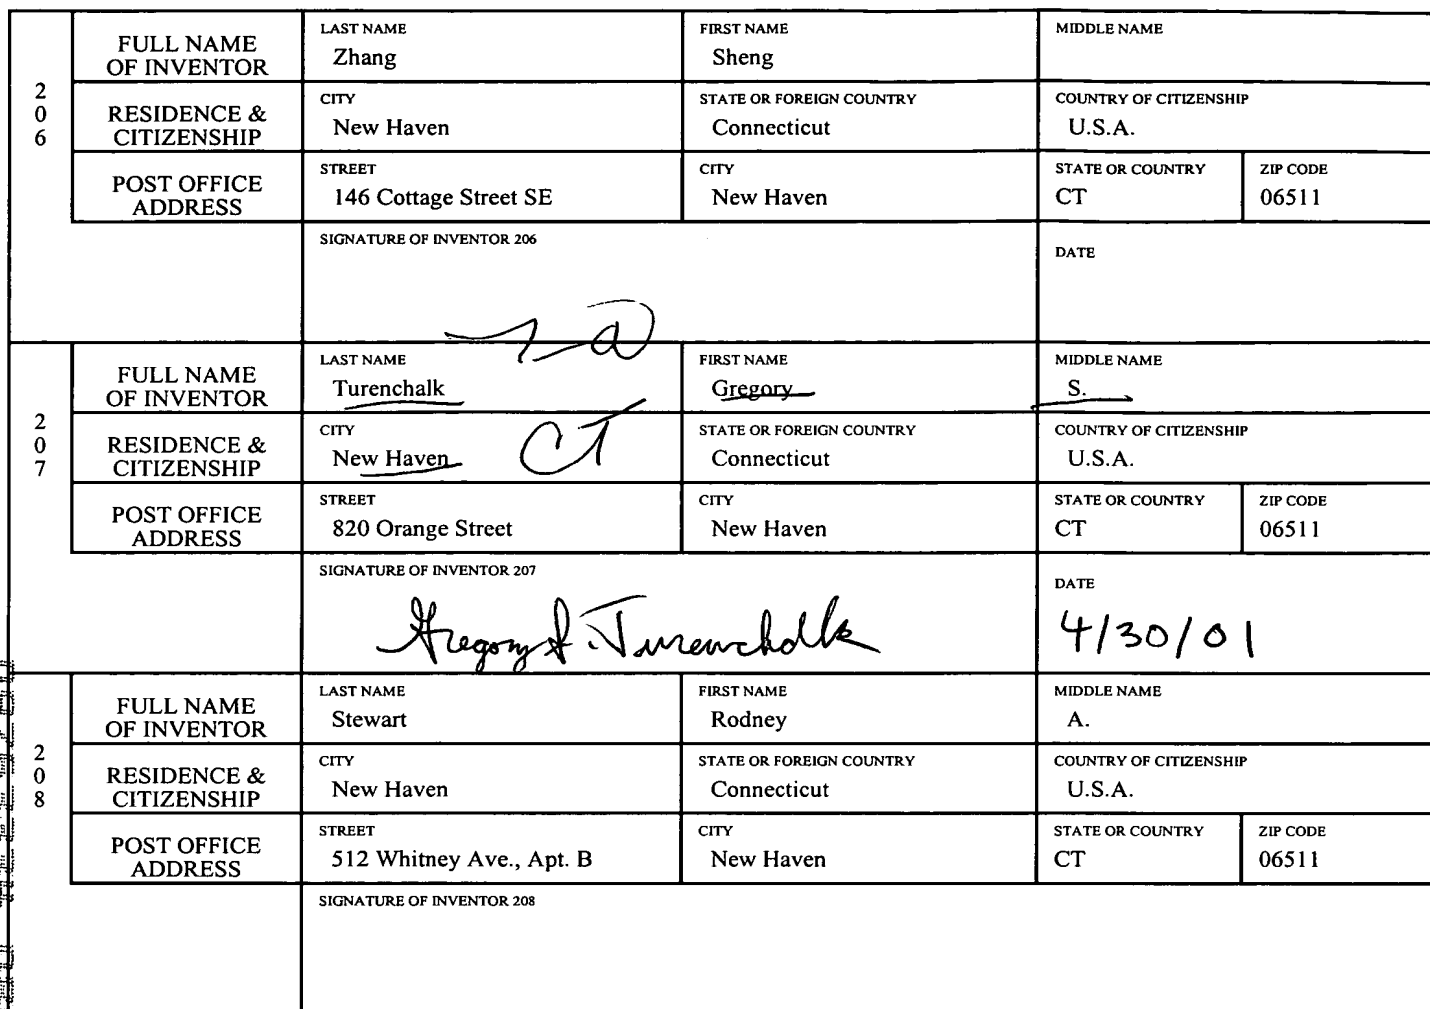 2
0
6
FULL NAME
OF INVENTOR
LAST NAME
Zhang
FIRST NAME
Sheng
MIDDLE NAME
RESIDENCE &
CITIZENSHIP
CITY
New Haven
STATE OR FOREIGN COUNTRY
Connecticut
COUNTRY OF CITIZENSHIP
U.S.A.
POST OFFICE
ADDRESS
STREET
146 Cottage Street SE
CITY
New Haven
STATE OR COUNTRY
CT
ZIP CODE
06511
SIGNATURE OF INVENTOR 206
DATE
2
0
7
FULL NAME
OF INVENTOR
LAST NAME
Turenchalk
FIRST NAME
Gregory
MIDDLE NAME
S.
RESIDENCE &
CITIZENSHIP
CITY
New Haven
CT
STATE OR FOREIGN COUNTRY
Connecticut
COUNTRY OF CITIZENSHIP
U.S.A.
POST OFFICE
ADDRESS
STREET
820 Orange Street
CITY
New Haven
STATE OR COUNTRY
CT
ZIP CODE
06511
SIGNATURE OF INVENTOR 207
Gregory S. Turenchalk
DATE
4/30/01
2
0
8
FULL NAME
OF INVENTOR
LAST NAME
Stewart
FIRST NAME
Rodney
MIDDLE NAME
A.
RESIDENCE &
CITIZENSHIP
CITY
New Haven
STATE OR FOREIGN COUNTRY
Connecticut
COUNTRY OF CITIZENSHIP
U.S.A.
POST OFFICE
ADDRESS
STREET
512 Whitney Ave., Apt. B
CITY
New Haven
STATE OR COUNTRY
CT
ZIP CODE
06511
SIGNATURE OF INVENTOR 208